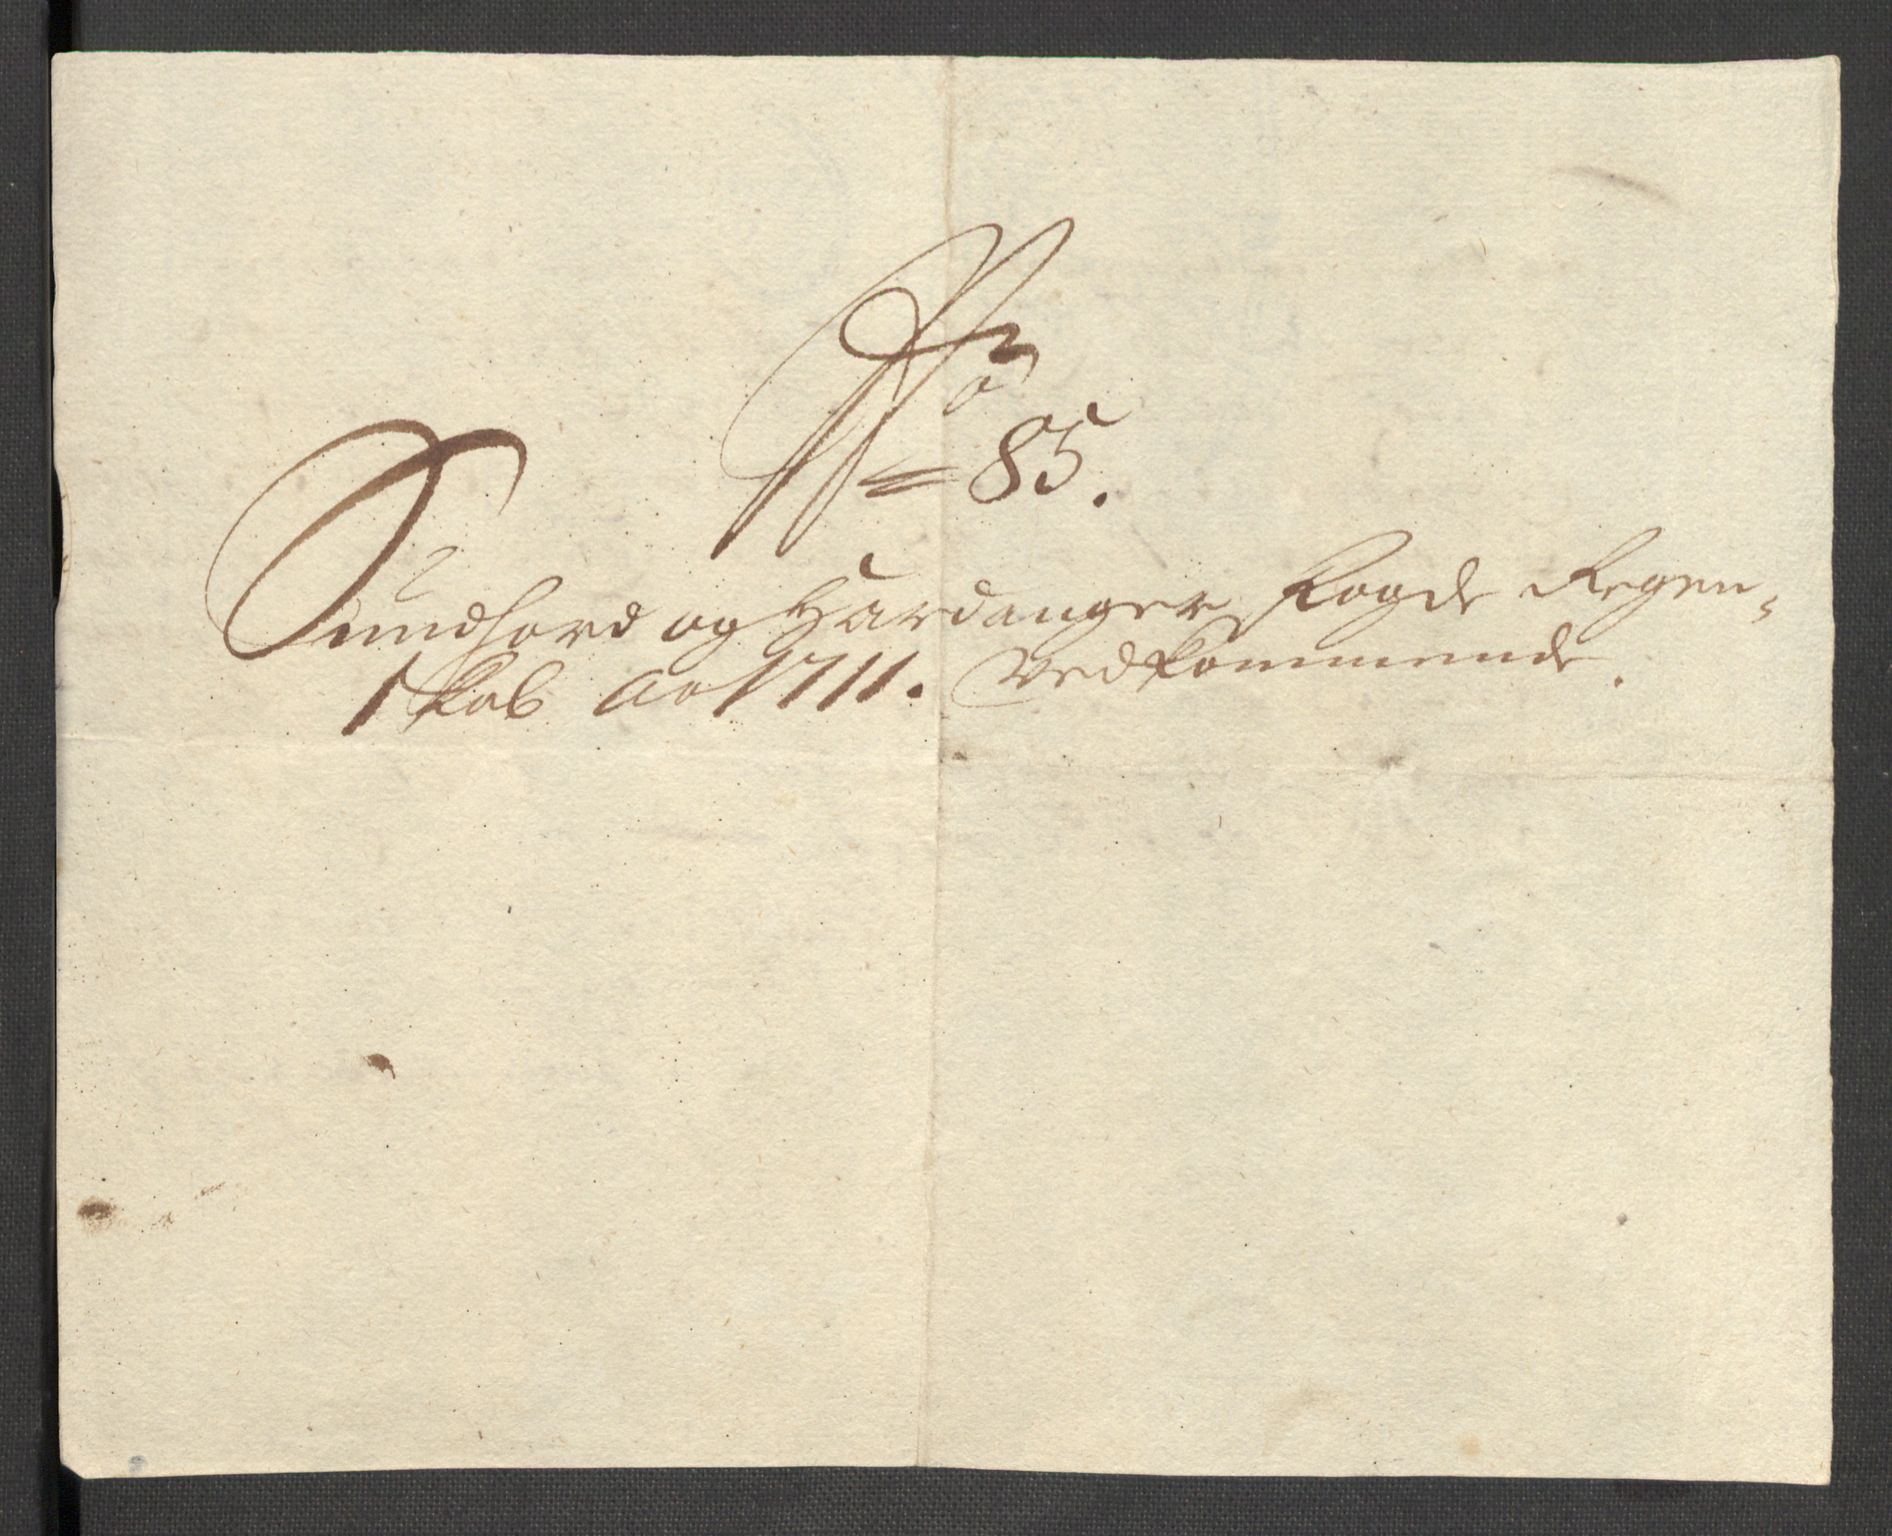 No 85.
Sundhord og Hardanger Fogde Regen-
skab Ao 1711. Vedkommende.